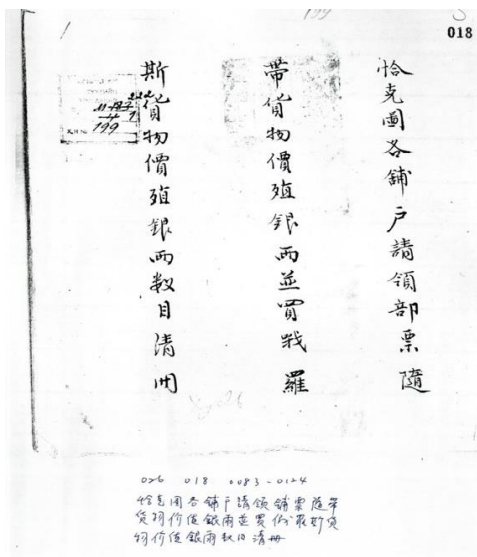 018
199
恰克圖各鋪户請領部票隨
帶貨物價殖銀兩並買戕羅
斯貨物價殖銀兩数目清冊
199
026 018 0083-0124
恰克图各鋪户請领鋪票隨带
货物价值銀兩並買俄罗斯货
物价值銀兩数目清冊